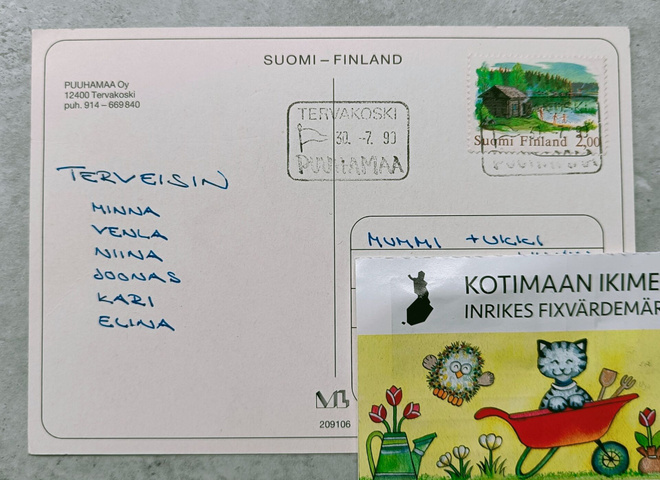 SUOMI – FINLAND
PUUHAMAA Oy
12400 Tervakoski
puh. 914 – 669 840
TERVAKOSKI
30. -7. 90
PUUHAMAA
Suomi Finland 2,00
PUUHAMAA
TERVEISIN
MINNA
VENLA
NIINA
JOONAS
KARI
ELINA
MUMMI + UKKI
209106
KOTIMAAN IKIME
INRIKES FIXVÄRDEMÄR